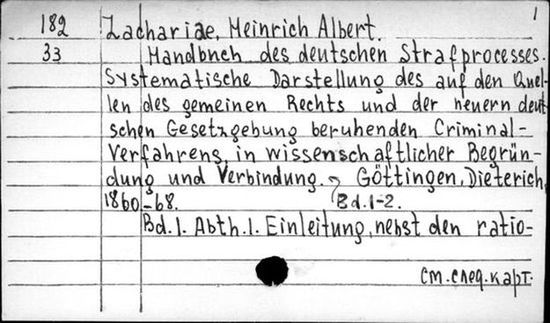 1
182 Zachariae, Heinrich Albert.
33 Handbuch des deutschen Strafprocesses.
Systematische Darstellung des auf den Quel-
len des gemeinen Rechts und der neuern deut-
schen Gesetzgebung beruhenden Criminal-
Verfahrens, in wissenschaftlicher Begrün-
dung und Verbindung. Göttingen, Dieterich,
1860-68. Bd.1-2.
Bd.1. Abth.1. Einleitung, nebst den ratio-
См. след. карт.